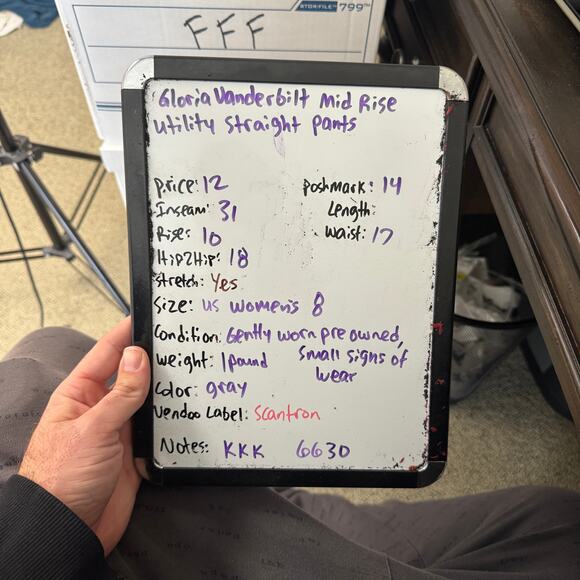 STOR/FILE™ 799™
FFF
Gloria Vanderbilt Mid Rise
Utility Straight pants
price: 12 poshmark: 14
Inseam: 31 Length:
Rise: 10 Waist: 17
Hip2Hip: 18
stretch: Yes
Size: US women's 8
Condition: Gently worn pre owned,
Weight: 1 pound Small signs of
wear
Color: gray
Vendoo Label: Scantron
Notes: KKK 6630